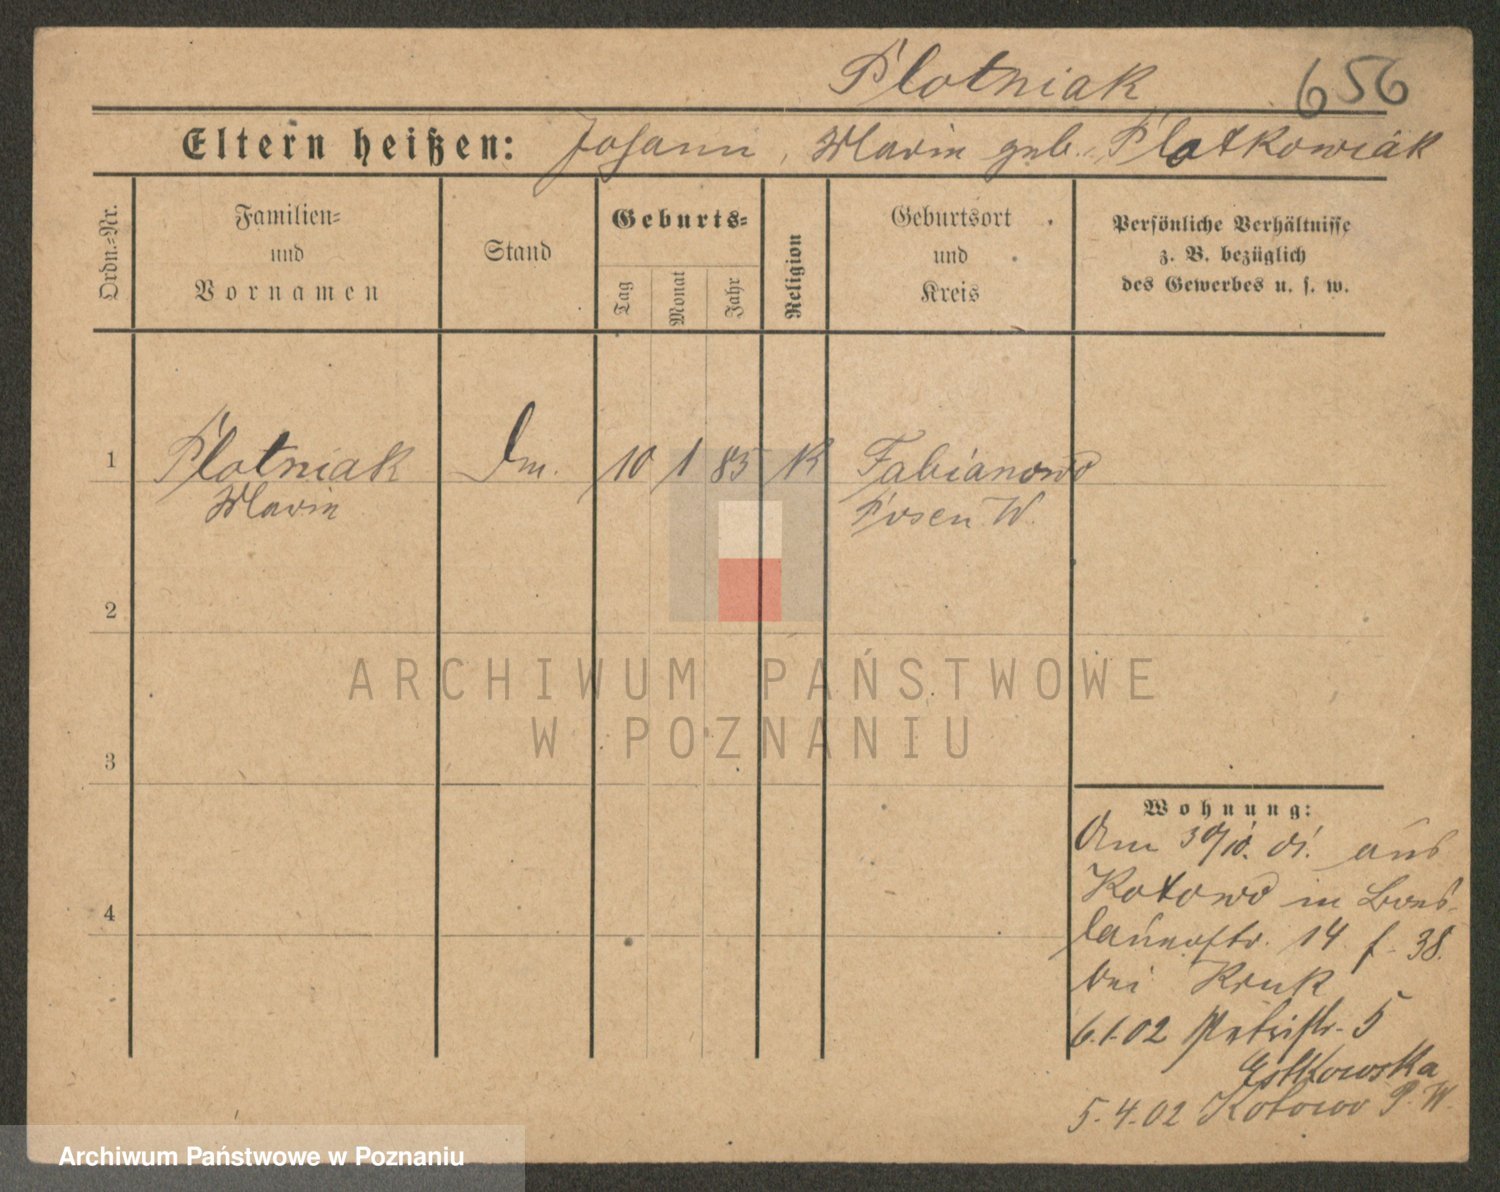 Plotniak 656
Eltern heißen: Johann, Marie geb. Plotkowiak
Ordn.-Nr.
Familien-
und
Vornamen
Stand
Geburts-
Tag
Monat
Jahr
Religion
Geburtsort
und
Kreis
Persönliche Verhältnisse
z. B. bezüglich
des Gewerbes u. s. w.
1 Plotniak Dm. 10 1 85 K Fabianowo
Marie Posen W.
2
ARCHIWUM PAŃSTWOWE
W POZNANIU
3
Wohnung:
Am 01. aus
Kotowo in Bres-
lauerstr. 14 f. 38.
bei Kruk
4
6.1.02 Petristr. 5
5.4.02 Kotowo P. W.
Archiwum Państwowe w Poznaniu